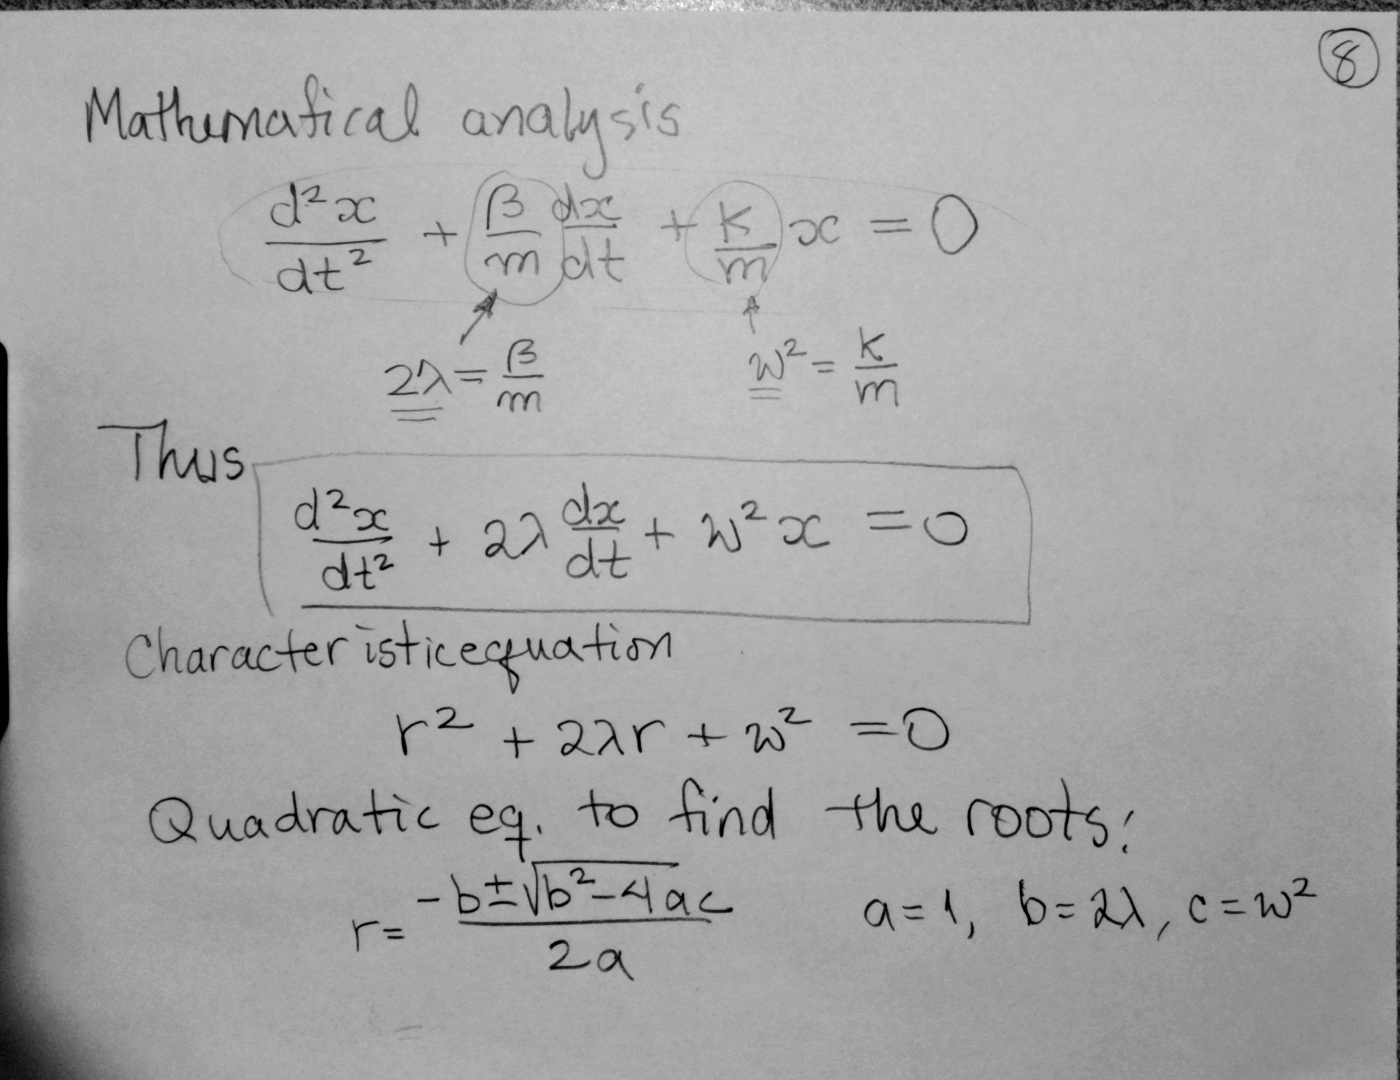 ⑧
Mathematical analysis
d²x/dt² + β/m dx/dt + k/m x = 0
2λ = β/m   w² = k/m
Thus
d²x/dt² + 2λ dx/dt + w²x = 0
Characteristic equation
r² + 2λr + w² = 0
Quadratic eq. to find the roots:
r = -b±√(b²-4ac)/2a   a=1, b=2λ, c=w²